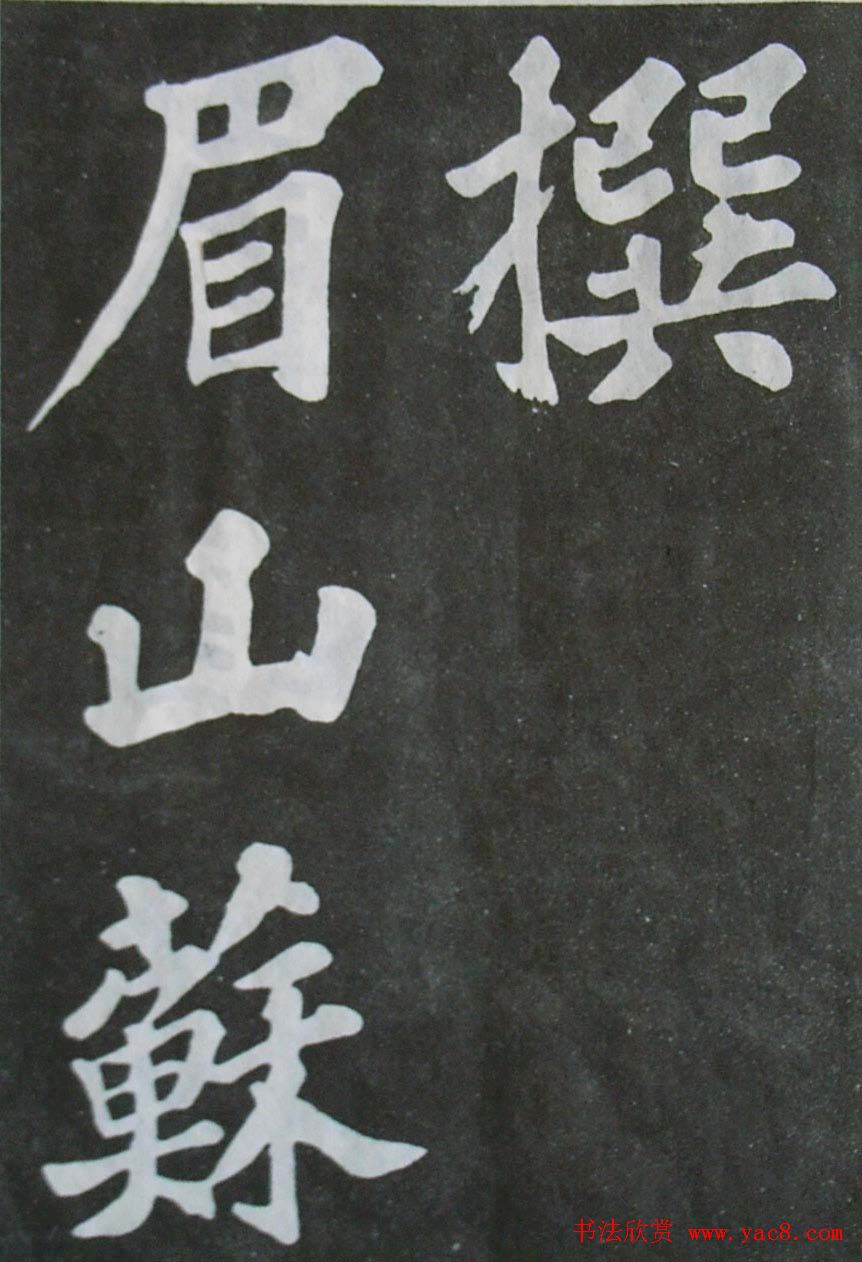 撰
眉山蘇
书法欣赏 www.yac8.com